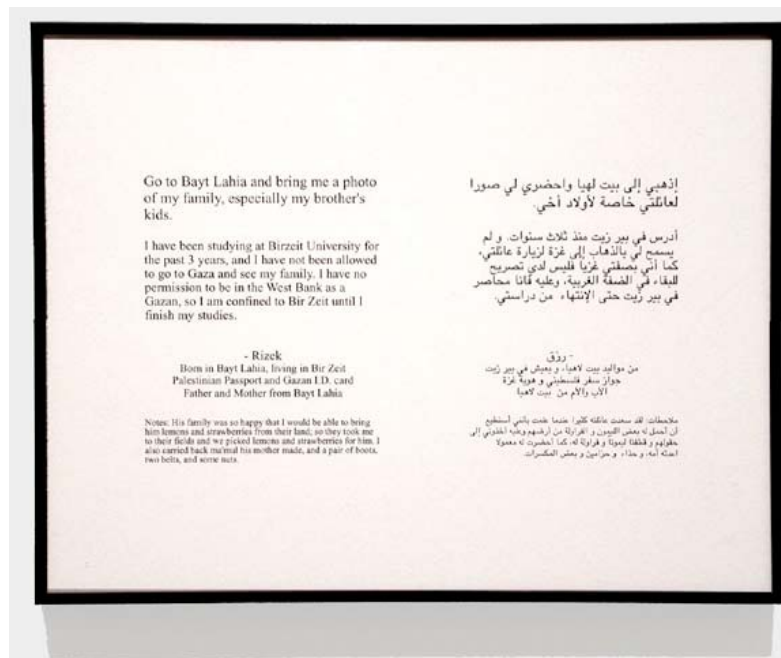 Go to Bayt Lahia and bring me a photo
of my family, especially my brother's
kids.
I have been studying at Birzeit University for
the past 3 years, and I have not been allowed
to go to Gaza and see my family. I have no
permission to be in the West Bank as a
Gazan, so I am confined to Bir Zeit until I
finish my studies.
- Rizek
Born in Bayt Lahia, living in Bir Zeit
Palestinian Passport and Gazan I.D. card
Father and Mother from Bayt Lahia
Notes: His family was so happy that I would be able to bring
him lemons and strawberries from their land, so they took me
to their fields and we picked lemons and strawberries for him. I
also carried back ma'mul his mother made, and a pair of boots,
two belts, and some nuts.
إذهبي إلى بيت لهيا واحضري لي صورا
لعائلتي خاصة لأولاد أخي.
أدرس في بير زيت منذ ثلاث سنوات. و لم
يسمح لي بالذهاب إلى غزة لزيارة عائلتي،
كما أني بصفتي غزيا فليس لدي تصريح
للبقاء في الضفة الغربية، وعليه فأنا محاصر
في بير زيت حتى الإنتهاء من دراستي.
- رزق
من مواليد بيت لاهيا، و يعيش في بير زيت
جواز سفر فلسطيني و هوية غزة
الأب والأم من بيت لاهيا
ملاحظات: لقد سعدت عائلته كثيرا عندما علمت بأنني أستطيع
أن أحمل له بعض الليمون و الفراولة من أرضهم وعليه أخذوني إلى
حقولهم و قطفنا ليمونا و فراولة له، كما أحضرت له معمولا
أعدته أمه، و حذاء و حزامين و بعض المكسرات.